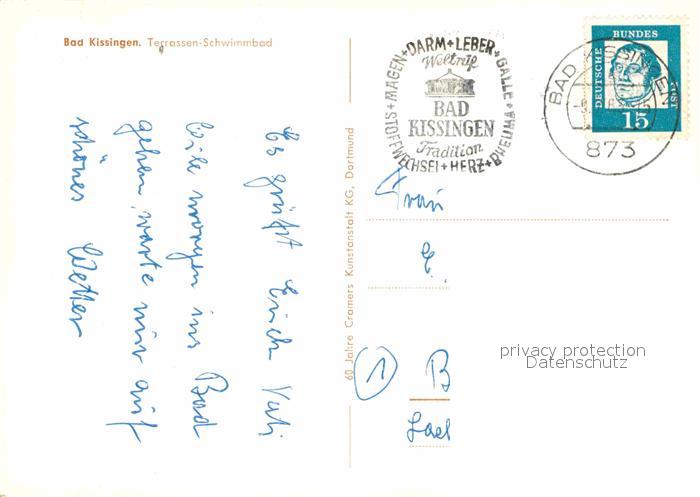 Bad Kissingen. Terrassen-Schwimmbad
Es grüßt Euch Vati
Will morgen ins Bad
gehen, warte nur auf
schönes Wetter
60 Jahre Cramers Kunstanstalt KG, Dortmund
STOFFWECHSEL + MAGEN + DARM + LEBER + GALLE + RHEUMA + HERZ +
Weltruf
BAD
KISSINGEN
Tradition
BAD KISSINGEN
873
DEUTSCHE
BUNDES
POST
15
Frau
E.
1
B
privacy protection
Datenschutz